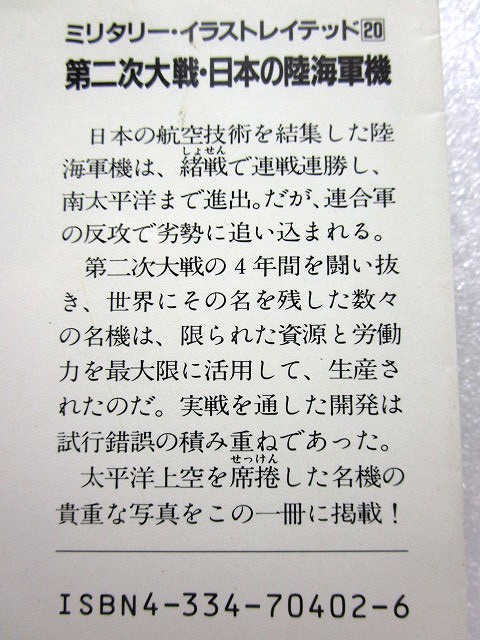 ミリタリー・イラストレイテッド20
第二次大戦・日本の陸海軍機
日本の航空技術を結集した陸
しょせん
海軍機は、緒戦で連戦連勝し、
南太平洋まで進出。だが、連合軍
の反攻で劣勢に追い込まれる。
第二次大戦の4年間を闘い抜
き、世界にその名を残した数々
の名機は、限られた資源と労働
力を最大限に活用して、生産さ
れたのだ。実戦を通した開発は
試行錯誤の積み重ねであった。
せっけん
太平洋上空を席捲した名機の
貴重な写真をこの一冊に掲載！
ISBN4-334-70402-6